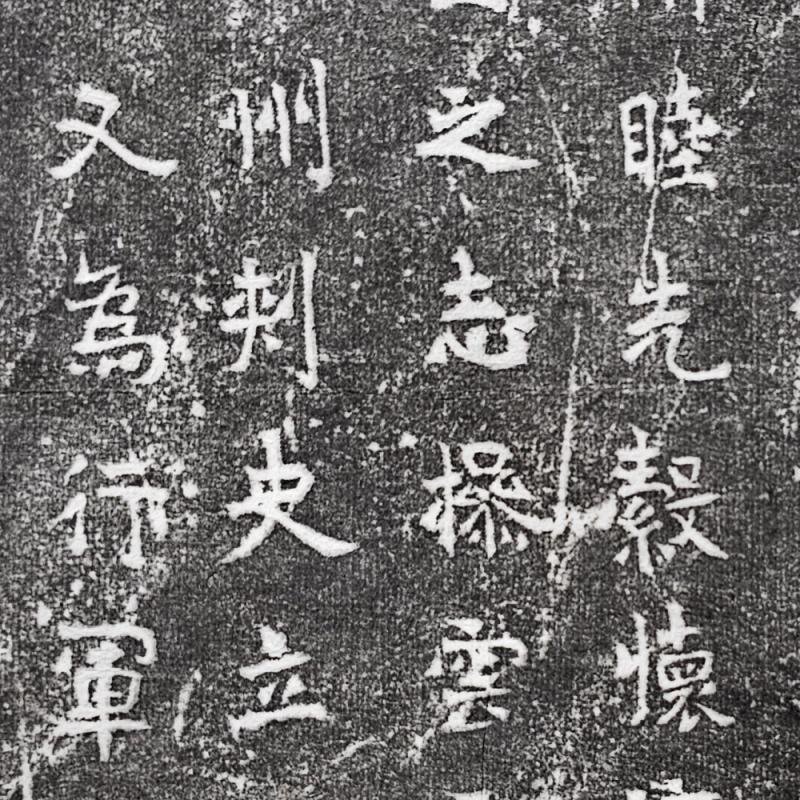 睦先縠懷
之志操雲
州刺史立
又為行軍